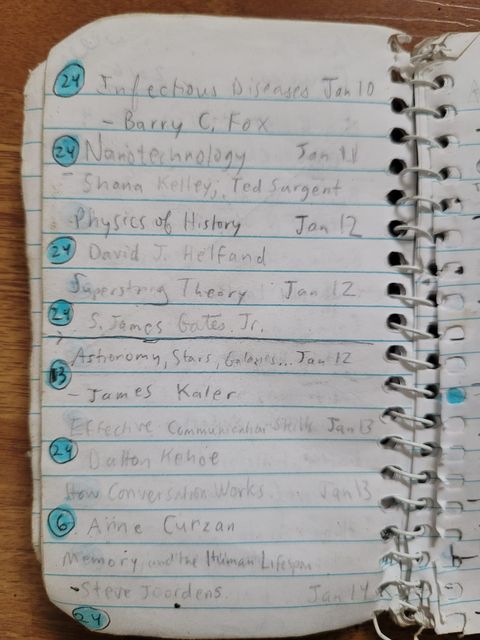 24 Infectious Diseases Jan 10
- Barry C. Fox
24 Nanotechnology Jan 11
- Shana Kelley, Ted Sargent
Physics of History Jan 12
24 David J. Helfand
Superstring Theory Jan 12
24 S. James Gates, Jr.
Astronomy, Stars, Galaxies... Jan 12
13 - James Kaler
Effective Communication Skills Jan 13
24 Dalton Kehoe
How Conversation Works Jan 13
6 Anne Curzan
Memory and the Human Lifespan
- Steve Joordens Jan 14
24